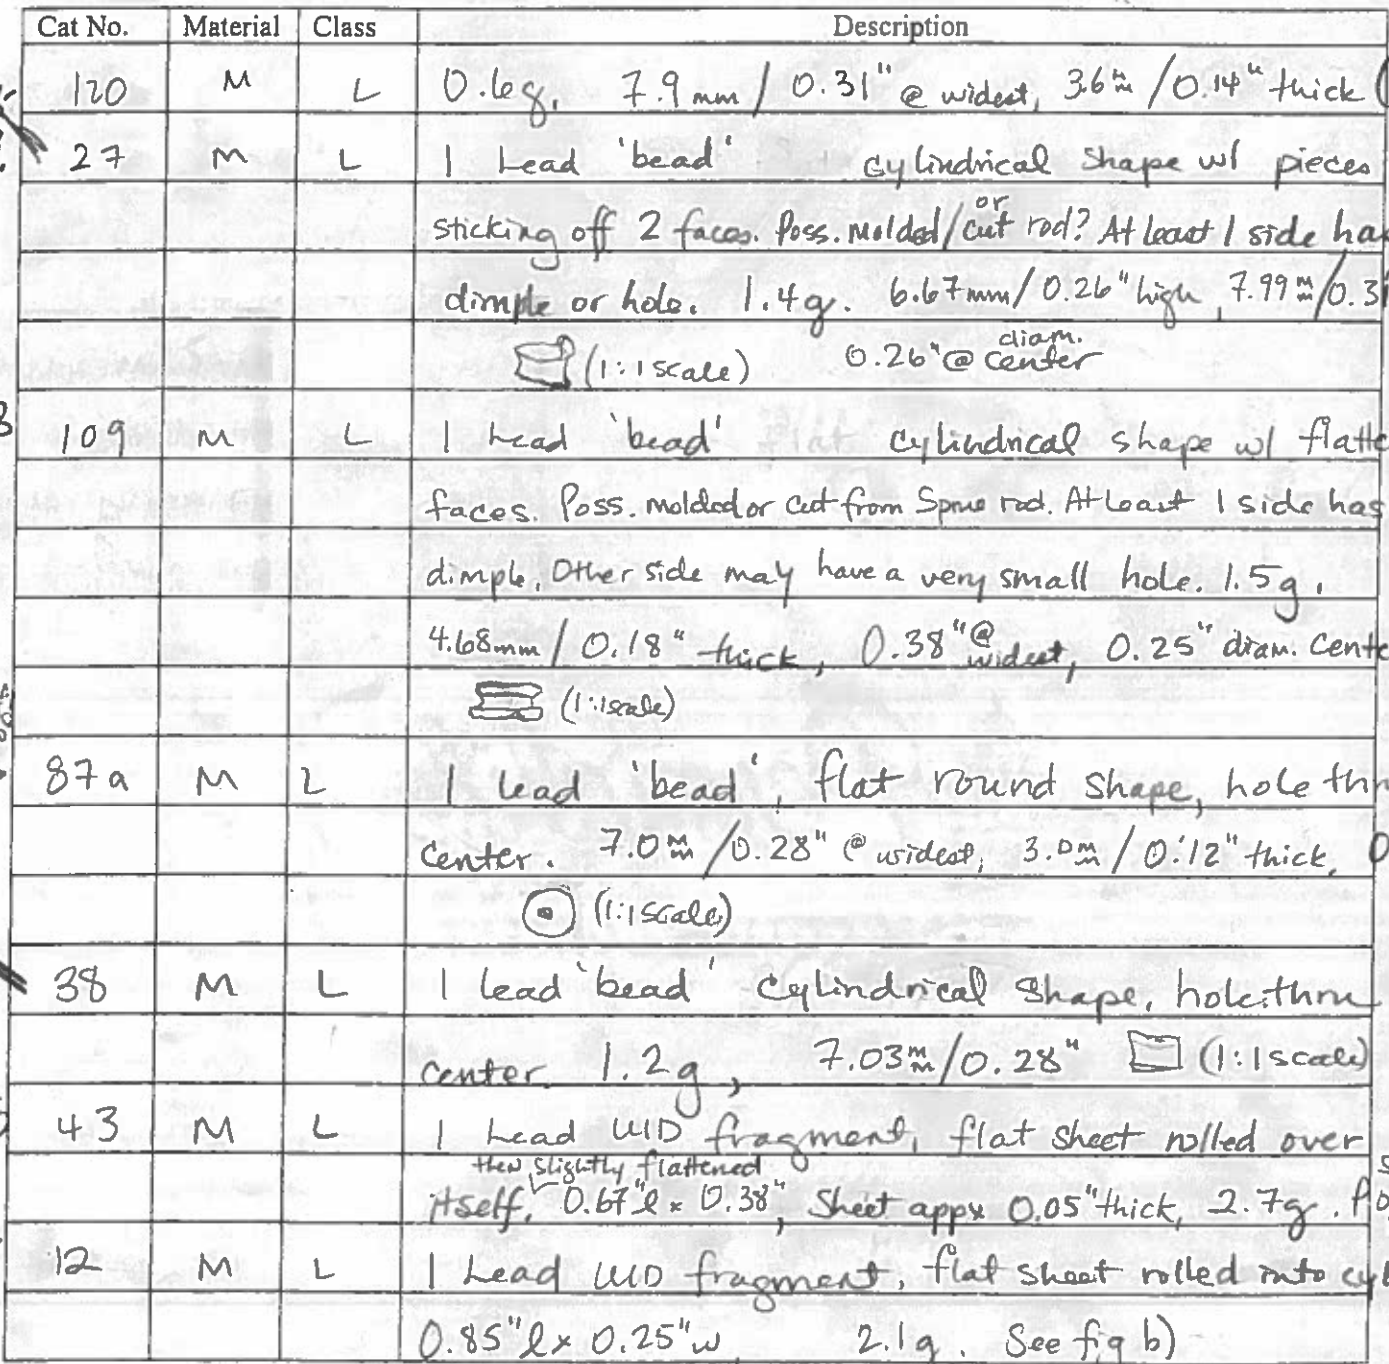 Cat No. Material Class Description
120 M L 0.6g, 7.9 mm / 0.31" @ widest, 3.6mm / 0.14" thick (
27 M L 1 Lead 'bead' cylindrical shape w/ pieces
sticking off 2 faces. Poss. molded/or cut rod? At least 1 side has
dimple or hole. 1.4g. 6.67mm/0.26" high, 7.99mm/0.31
(1:1 scale) 0.26" @ diam. center
109 M L 1 Lead 'bead' cylindrical shape w/ flatte
faces. Poss. molded or cut from Sprue rod. At least 1 side has
dimple. Other side may have a very small hole. 1.5g.
4.68mm / 0.18" thick, 0.38" @ widest, 0.25" diam. Cente
(1:1 scale)
87a M L 1 lead 'bead', flat round shape, hole thr
center. 7.0mm/0.28" @ widest, 3.0mm / 0.12" thick, 0
(1:1 scale)
38 M L 1 lead 'bead' cylindrical shape, hole thru
center. 1.2g, 7.03mm/0.28" (1:1 scale)
43 M L 1 Lead UID fragment, flat sheet rolled over
then slightly flattened
itself. 0.67"l x 0.38", Sheet appx 0.05" thick, 2.7g. Po
12 M L 1 Lead UID fragment, flat sheet rolled into cyl
0.85"l x 0.25"w 2.1g. See fig b)